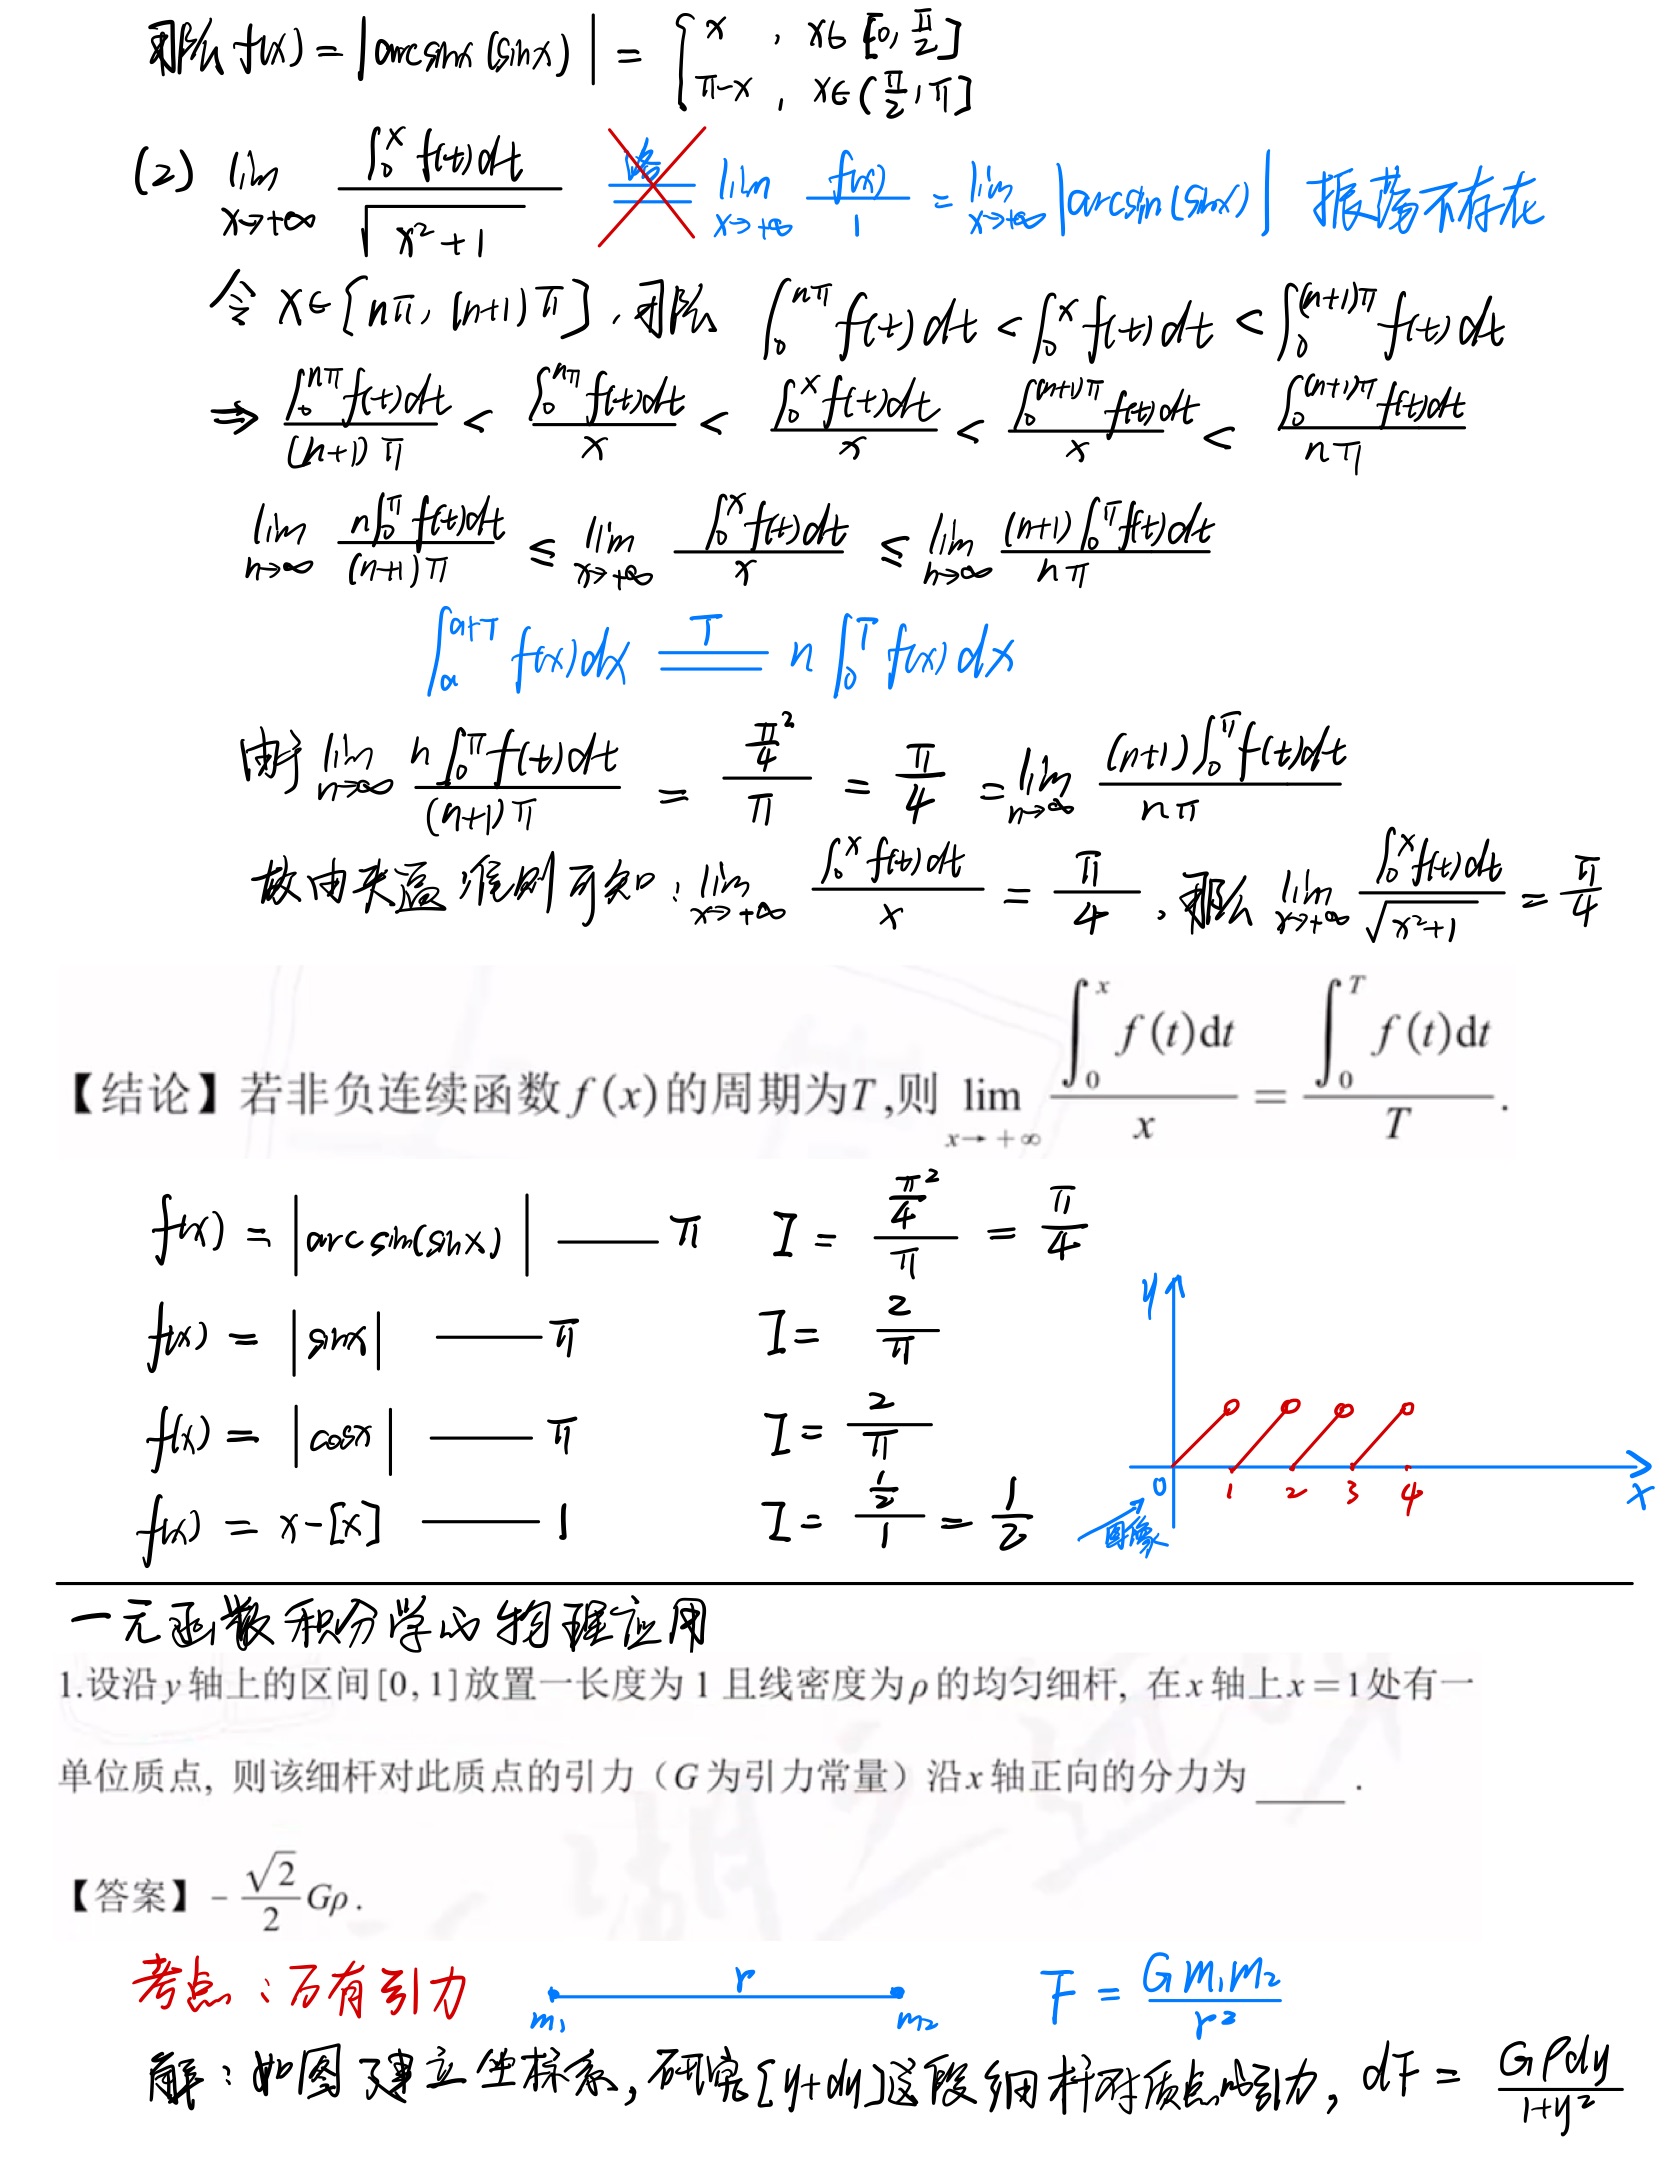 那么 f(x) = |arcsinx (sinx)| = { x , x∈[0, π/2]
π-x , x∈(π/2, π]
(2) lim x→+∞ ∫₀ˣ f(t)dt / √(x²+1) 洛 lim x→+∞ f(x)/1 = lim x→+∞ |arcsin(sinx)| 振荡不存在
令 x∈[nπ, (n+1)π], 那么 ∫₀^{nπ} f(t)dt < ∫₀ˣ f(t)dt < ∫₀^{(n+1)π} f(t)dt
⇒ ∫₀^{nπ} f(t)dt / (n+1)π < ∫₀^{nπ} f(t)dt / x < ∫₀ˣ f(t)dt / x < ∫₀^{(n+1)π} f(t)dt / x < ∫₀^{(n+1)π} f(t)dt / nπ
lim n→∞ n∫₀^π f(t)dt / (n+1)π ≤ lim x→+∞ ∫₀ˣ f(t)dt / x ≤ lim n→∞ (n+1)∫₀^π f(t)dt / nπ
∫ₐ^{a+T} f(x)dx =T= n∫₀^T f(x)dx
由于 lim n→∞ n∫₀^π f(t)dt / (n+1)π = (π²/4)/π = π/4 = lim n→∞ (n+1)∫₀^π f(t)dt / nπ
故由夹逼准则可知: lim x→+∞ ∫₀ˣ f(t)dt / x = π/4, 那么 lim x→+∞ ∫₀ˣ f(t)dt / √(x²+1) = π/4
【结论】若非负连续函数 f(x) 的周期为T,则 lim x→+∞ ∫₀ˣ f(t)dt / x = ∫₀^T f(t)dt / T.
f(x) = |arcsin(sinx)| —— π I = (π²/4)/π = π/4
f(x) = |sinx| —— π I = 2/π
f(x) = |cosx| —— π I = 2/π
f(x) = x-[x] —— 1 I = (1/2)/1 = 1/2
y
0 1 2 3 4 x
图像
一元函数积分学的物理应用
1.设沿 y 轴上的区间[0, 1]放置一长度为 1 且线密度为 ρ 的均匀细杆, 在 x 轴上 x = 1处有一
单位质点, 则该细杆对此质点的引力（G 为引力常量）沿 x 轴正向的分力为 ____ .
【答案】 - √2/2 Gρ .
考点:万有引力 m₁ r m₂ F = Gm₁m₂/r²
解:如图建立坐标系, 研究[y+dy]这段细杆对质点的引力, dF = Gρdy/(1+y²)